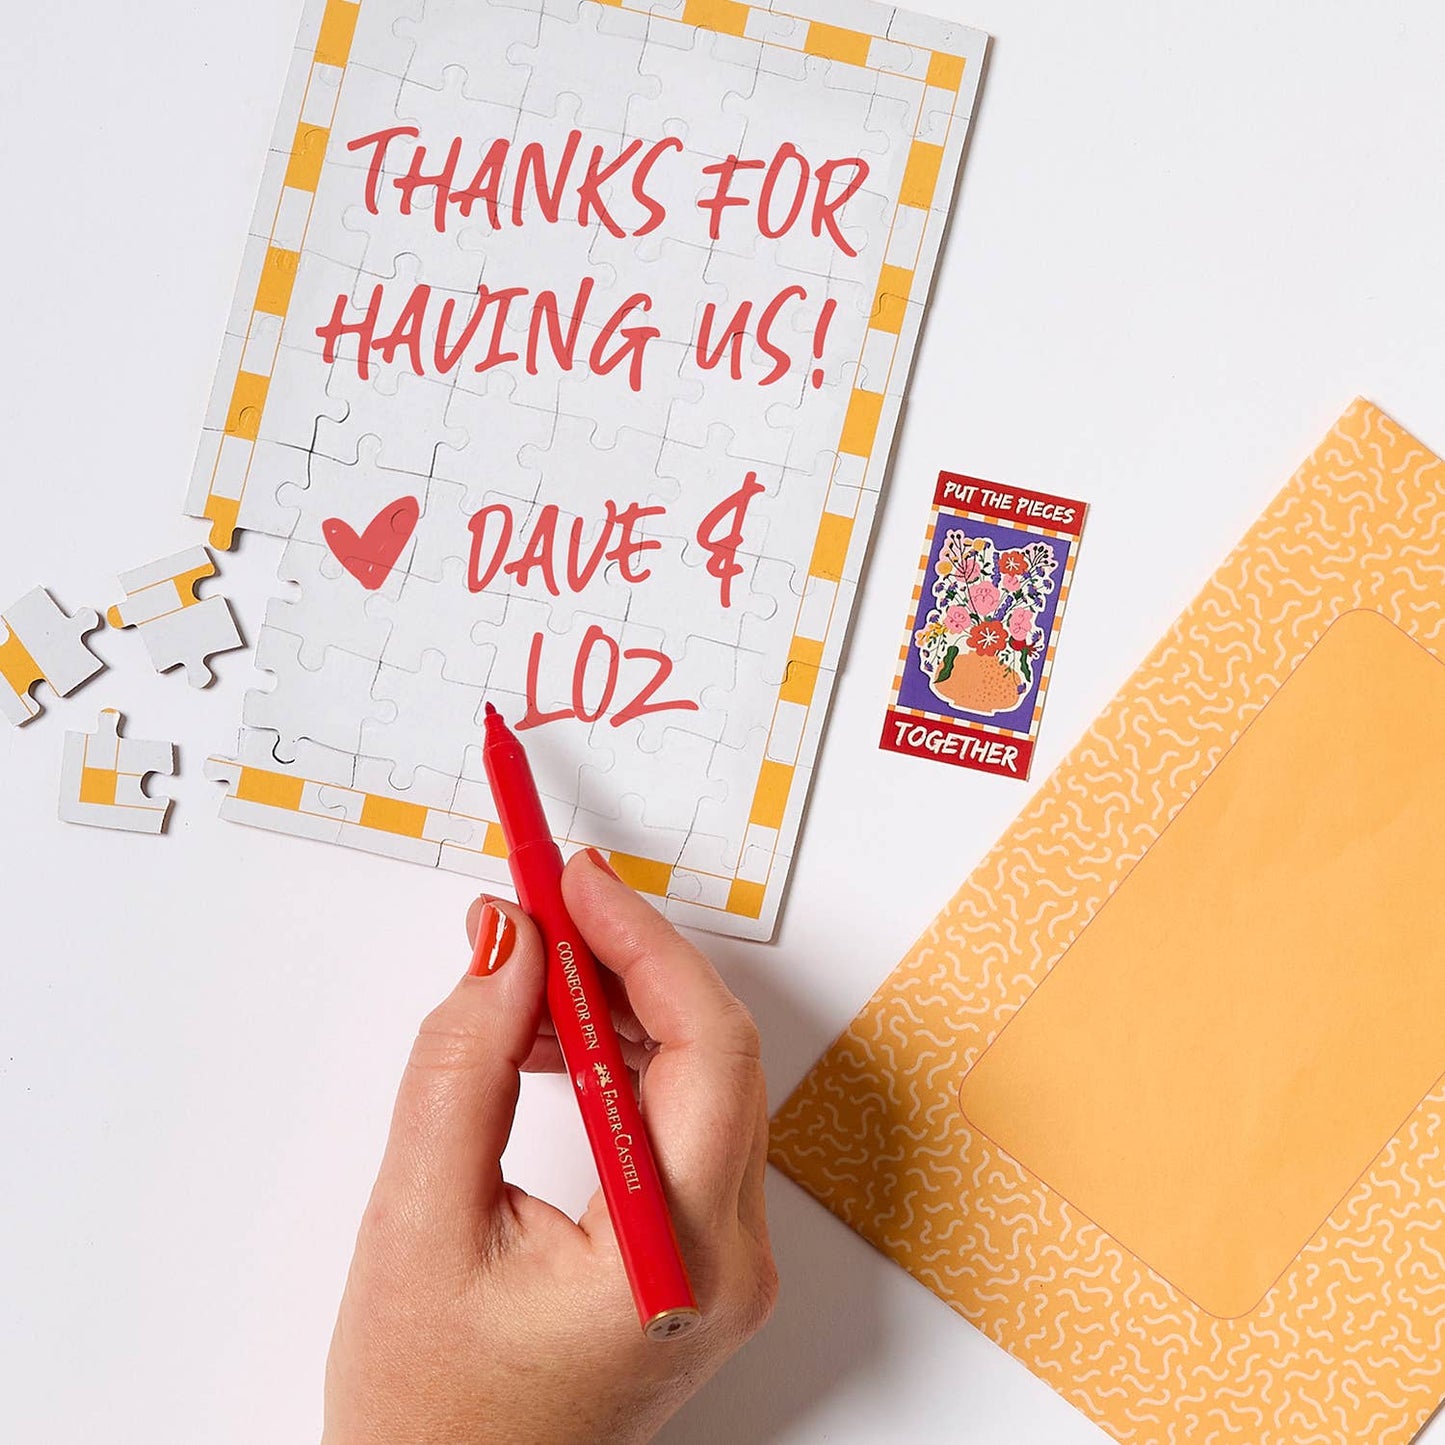 THANKS FOR
HAVING US!
♥ DAVE &
LOZ
PUT THE PIECES
TOGETHER
CONNECTOR PEN FABER-CASTELL